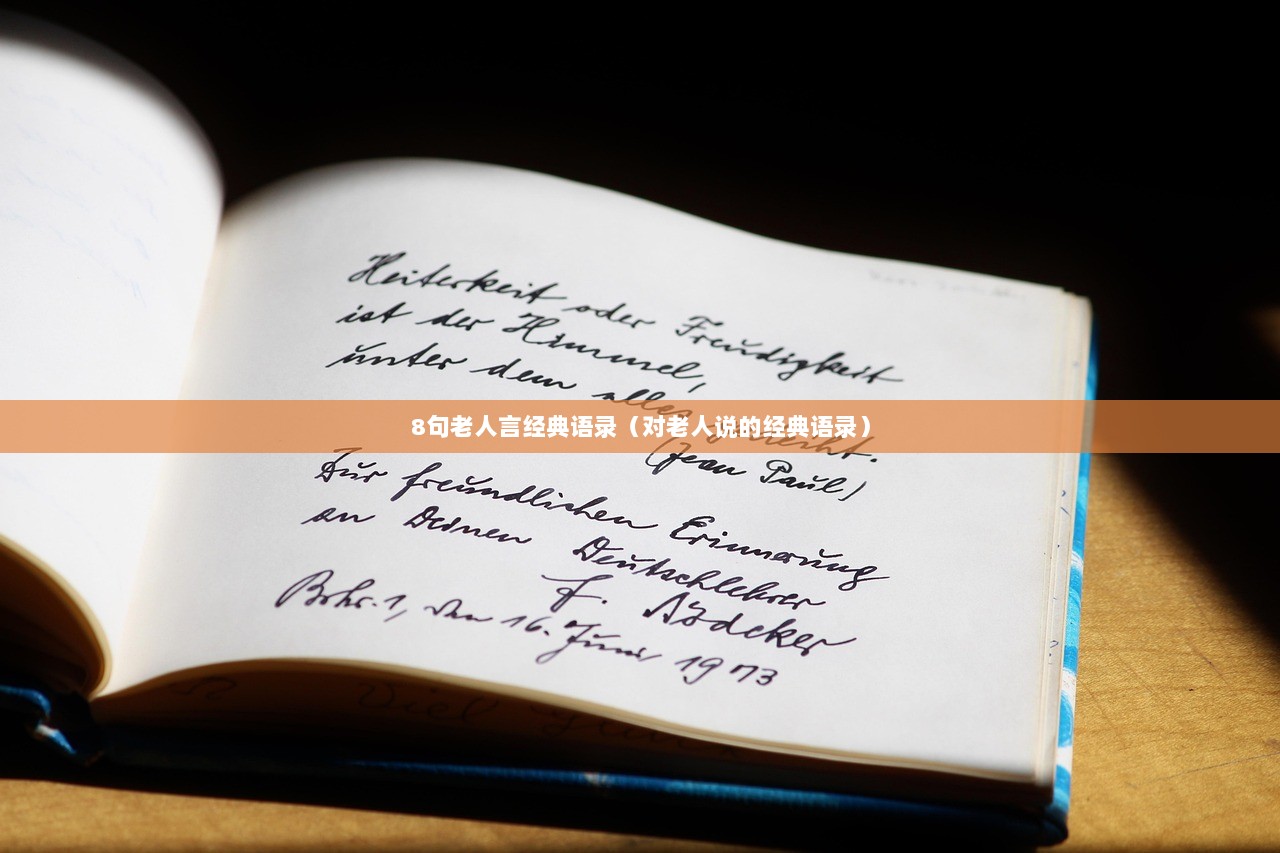 Heiterkeit oder Freudigkeit
ist der Himmel,
unter dem alles
8句老人言经典语录（对老人说的经典语录）
(Jean Paul)
Zur freundlichen Erinnerung
an Deinen Deutschlehrer
F.
den 16. Juni 1973
Viel